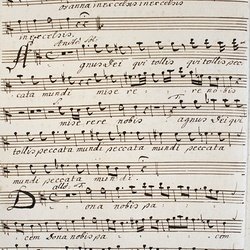 osanna in excelsis in excelsis
in excelsis.
Agnus Dei qui tollis qui tollis pec
cata mundi mise re re no bis
mise rere nobis agnus Dei qui
tollis peccata mundi peccata mundi pec
cata mundi peccata mundi.
Dona nobis pa
cem dona nobis pa cem